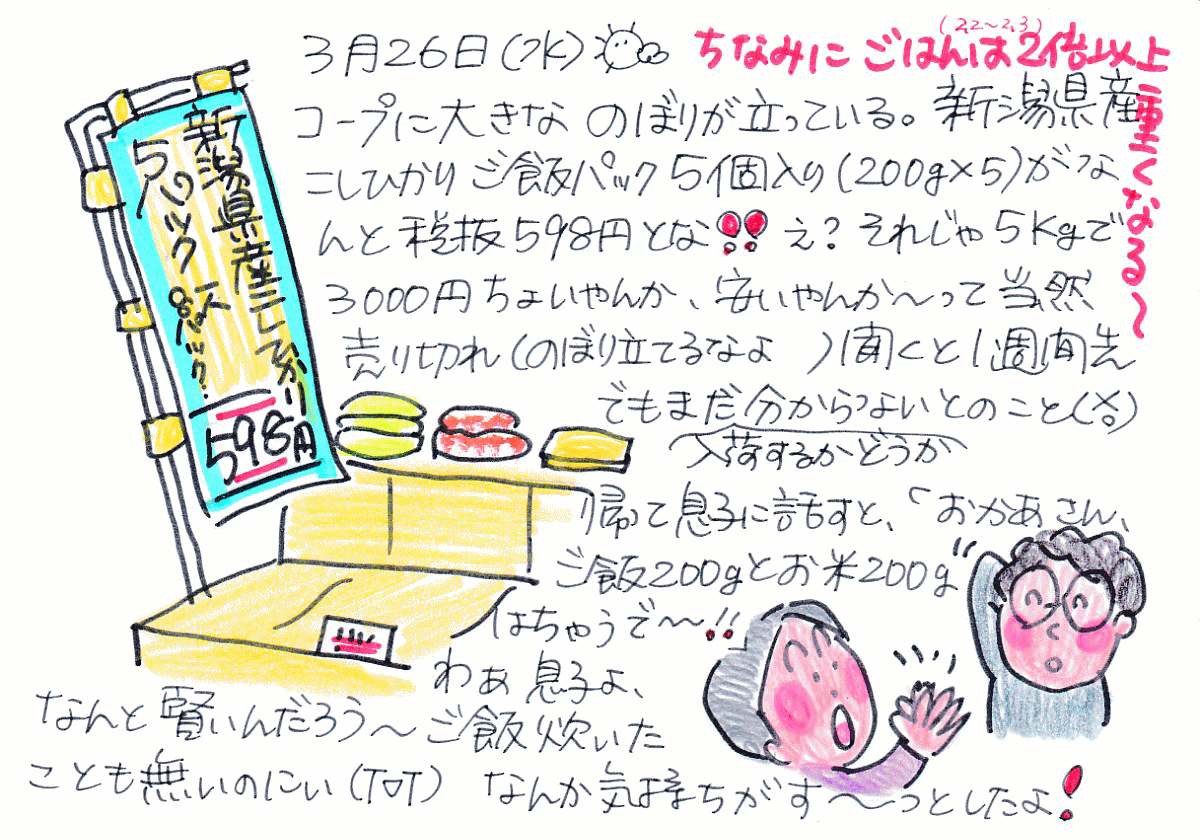 3月26日(水)
(2,2〜2,3)
ちなみに ごはんは2倍以上
重くなる〜
コープに大きな のぼりが立っている。新潟県産
こしひかり ご飯パック 5個入り(200g×5)がな
んと 税抜598円とな!! え? それじゃ5Kgで
3000円ちょいやんか、安いやんか〜って 当然
売り切れ(のぼり立てるなよ )聞くと1週間先
でもまだ分からないとのこと
入荷するかどうか
帰って息子に話すと、「おかあさん、
ご飯200gとお米200g
はちゃうで〜〜!!
わぁ 息子よ、
なんと 賢いんだろう〜 ご飯 炊いた
ことも無いのにぃ(T▽T) なんか気持ちがす〜〜っとしたよ!
新潟県産こしひかり
5パック
598円